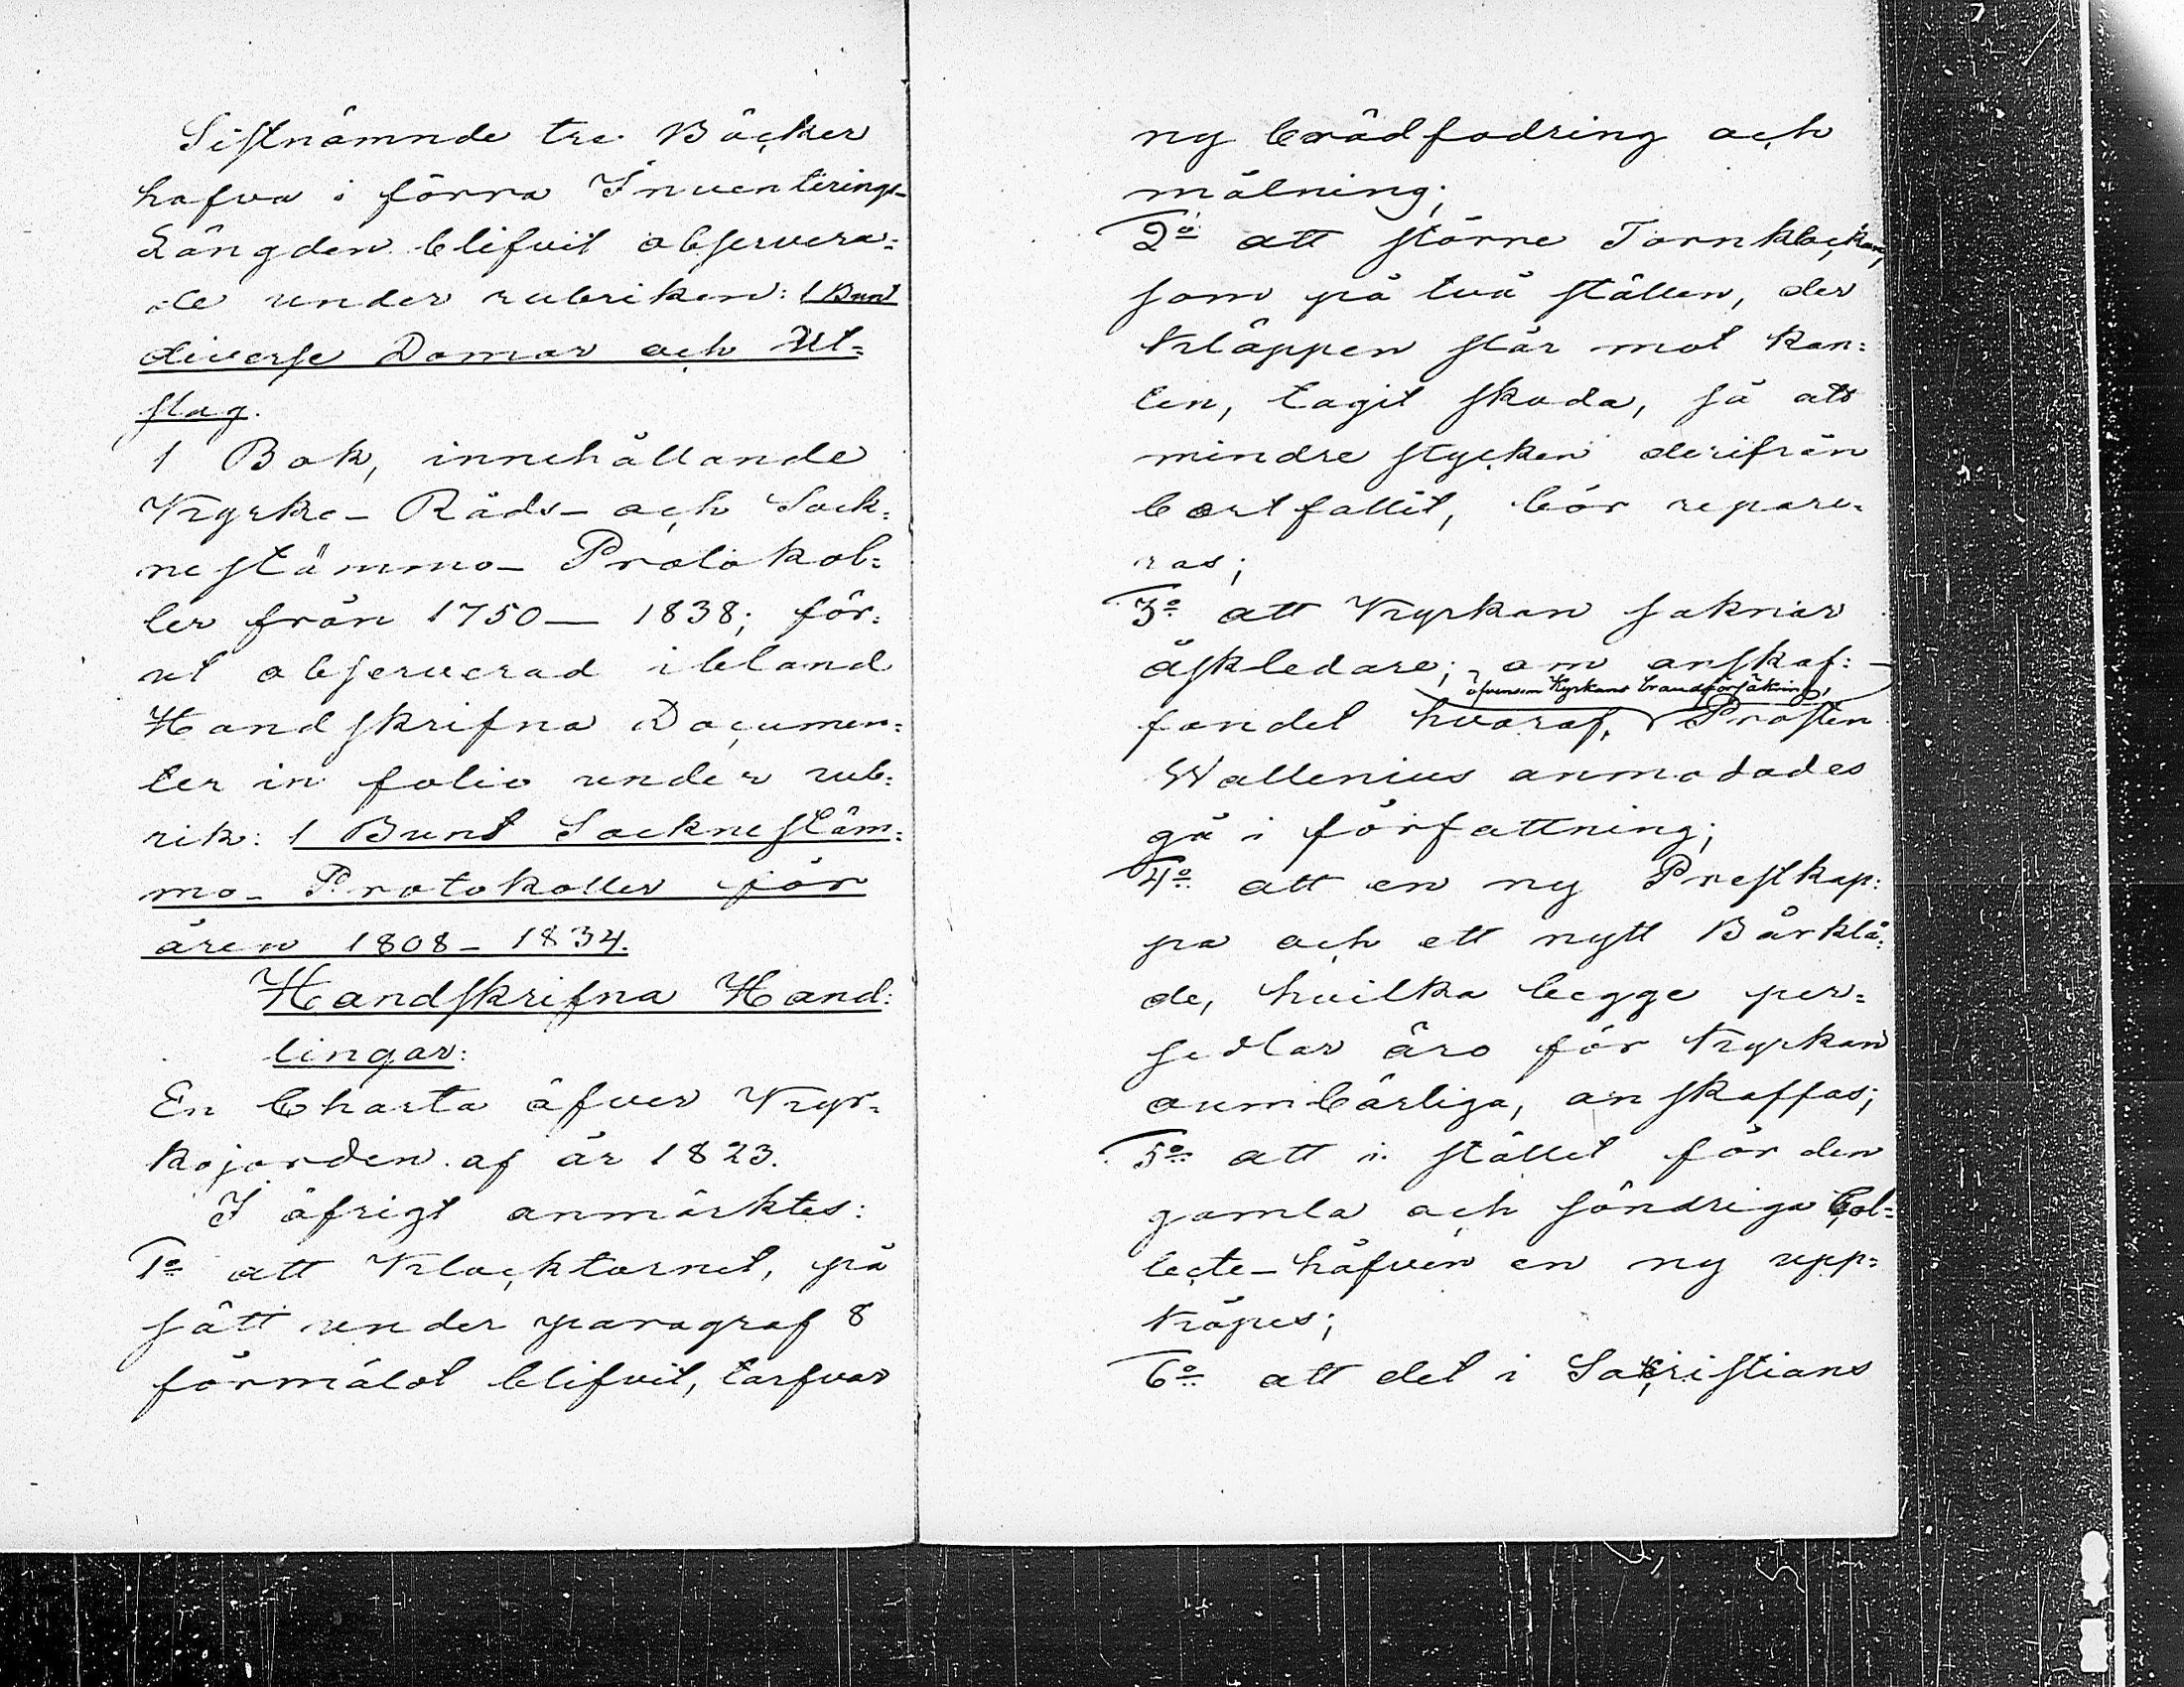 Sistnämnde tre Böcker
hafva i förra Inventerings-
Längden blifvit observera=
de under rubriken: 1 Bunt
diverse Domar och Ut=
slag.
1 Bok, innehållande
Kyrko- Råds- och Sock=
nestämmo- Protokol=
ler från 1750 — 1838; för=
ut observerad ibland
Handskrifna Documen=
ter in folio under rub=
rik: 1 Bunt Socknestäm=
mo- Protokoller för
åren 1808 - 1834.
Handskrifna Hand=
lingar:
En Charta öfver Kyr=
kojorden af år 1823.
I öfrigt anmärktes:
1o att Klocktornet, på
sätt under paragraf 8
förmäldt blifvit, tarfvar
ny brädfodring och
målning;
2o att större Tornklockan,
som på två ställen, der
Kläppen slår mot kan=
ten, tagit skada, så att
mindre stycken derifrån
bortfallit, bör repare=
ras;
3o att Kyrkan saknar
åskledare; om anskaf=
äfvensom Kyrkans brandförsäkring,
fandet hvaraf, Prosten
Wallenius anmodades
gå i författning;
4o att en ny Prestkap=
pa och ett nytt Bårklä=
de, hvilka begge per=
sedlar äro för Kyrkan
oumbärliga, anskaffas;
5o att i stället för den
gamla och söndriga Col=
lecte-håfven en ny upp=
köpes;
6o att det i Sakristians